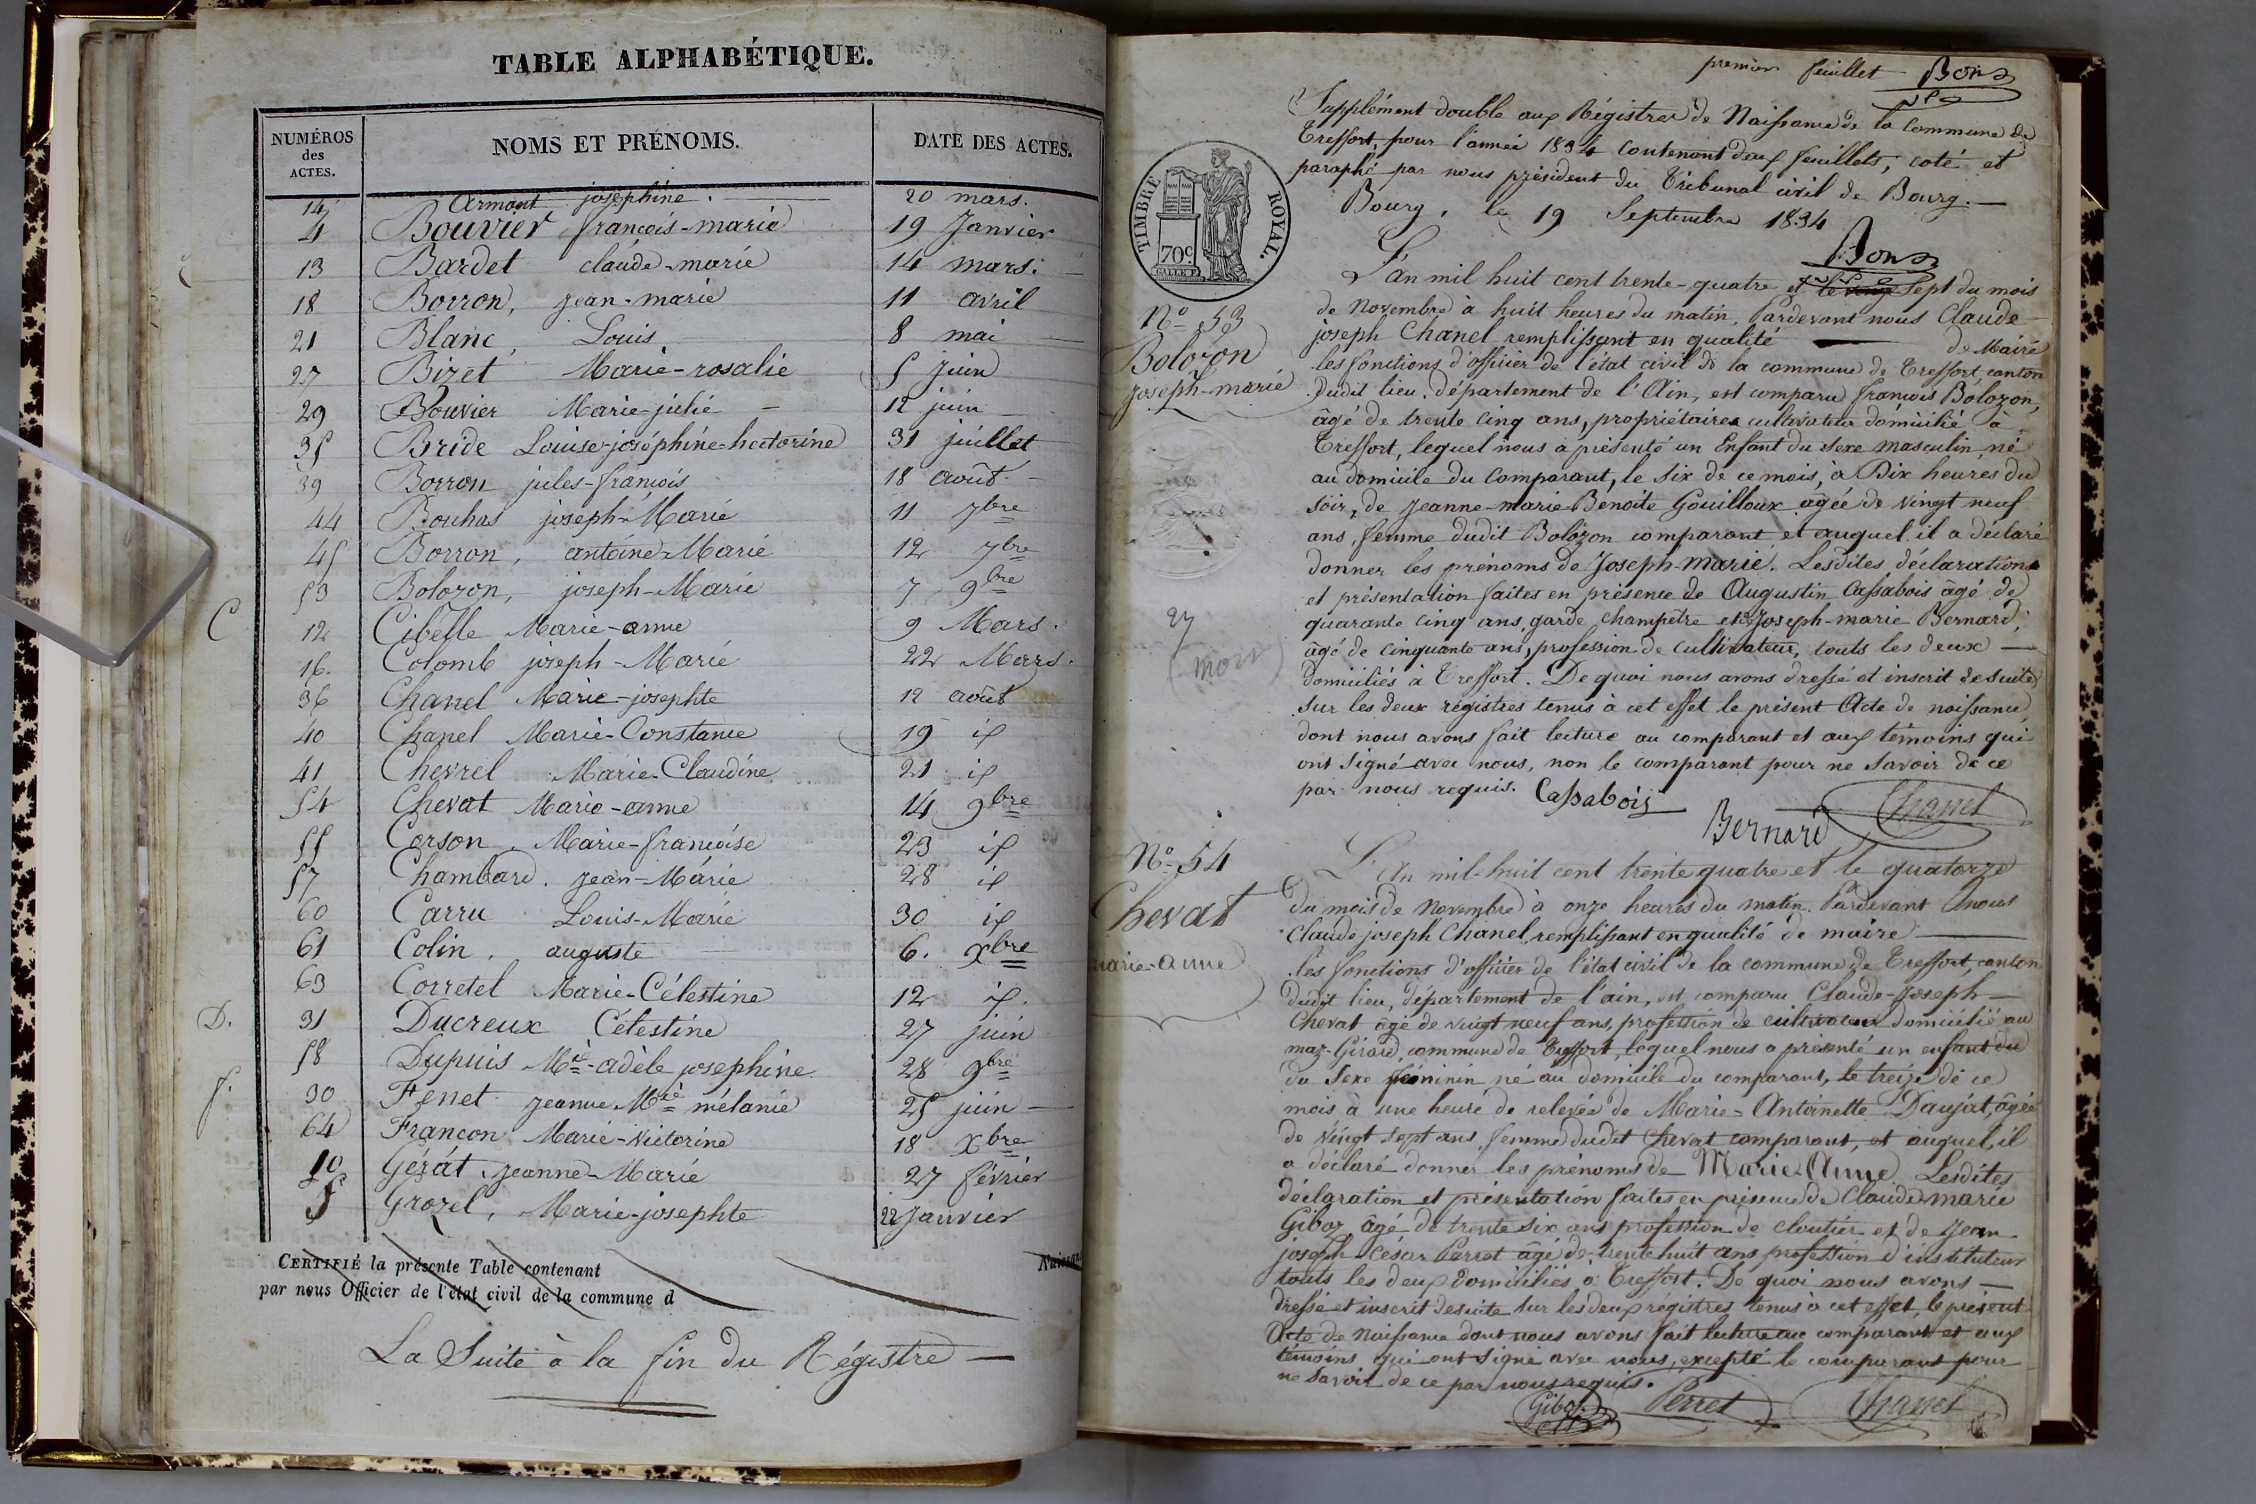 TABLE ALPHABÉTIQUE.
NUMÉROS des ACTES.
NOMS ET PRÉNOMS.
DATE DES ACTES.
14 Armont josephine 20 mars.
4 Bouvier françois-marie 19 Janvier
13 Bardet claude-marie 14 mars.
18 Borron, jean-marie 11 avril
21 Blanc, Louis 8 mai
27 Bizet Marie-rosalie 5 juin
29 Bouvier Marie-julie 12 juin
35 Bride Louise-joséphine-hectorine 31 juillet
39 Borron jules-françois 18 août
44 Bouhas joseph-Marie 11 7bre
45 Borron, antoine-Marie 12 7bre
53 Bolozon, joseph-Marie 7 9bre
C
12 Cibelle Marie-anne 9 Mars.
16. Colomb joseph-Marie 22 Mars.
36 Chanel Marie-josephte 12 août
40 Chanel Marie-Constance 19 id
41 Chevrel Marie-Claudine 21 id
54 Chevat Marie-anne 14 9bre
55 Corson, Marie-françoise 23 id
57 Chambard. jean-Marie 28 id
60 Carru Louis-Marie 30 id
61 Colin, auguste 6. Xbre
63 Corretel Marie-Célestine 12 id.
D.
31 Ducreux Célestine 27 juin
58 Dupuis Mie-adèle josephine 28 9bre
f.
30 Fenet jeanne Mie mélanie 25 juin
64 Francon Marie-victorine 18 Xbre
10 Gérât jeanne-Marie 27 février
5 Grozel, Marie-josephte 22 Janvier
CERTIFIÉ la présente Table contenant
par nous Officier de l'état civil de la commune d
La Suite à la fin du Régistre
premier feuillet Bon
Supplément double aux Régistres de Naissance de la Commune de
Treffort, pour l'année 1834 contenant deux feuillets, coté et
paraphé par nous président du Tribunal civil de Bourg.
Bourg, le 19 Septembre 1834
TIMBRE ROYAL.
70c
L'an mil huit cent trente-quatre et le sept du mois
de Novembre à huit heures du matin, Pardevant nous Claude
joseph Chanel remplissant en qualité de Maire
les fonctions d'officier de l'état civil de la commune de Treffort, canton
dudit lieu, département de l'Ain, est comparu françois Bolozon,
âgé de trente cinq ans, propriétaire cultivateur domicilié à
Treffort, lequel nous a présenté un Enfant du sexe masculin né
au domicile du comparant, le six de ce mois, à Dix heures du
soir, de Jeanne-marie-Benoite Gouilloux âgée de vingt neuf
ans, femme dudit Bolozon comparant et auquel il a déclaré
donner les prénoms de Joseph-Marie. Lesdites déclarations
et présentation faites en présence de Augustin Cassabois âgé de
quarante cinq ans, garde champêtre et Joseph-marie Bernard,
âgé de cinquante ans, profession de cultivateur, touts les deux
domiciliés à Treffort. De quoi nous avons dressé et inscrit de suite
sur les deux régistres tenus à cet effet le présent Acte de naissance
dont nous avons fait lecture au comparant et aux témoins qui
ont signé avec nous, non le comparant pour ne savoir de ce
par nous requis.
Cassabois Bernard Chanel
No 53
Bolozon
joseph-marie
27
No 54
Chevat
marie-anne
L'An mil-huit cent trente quatre et le quatorze
du mois de Novembre à onze heures du matin. Pardevant nous
Claude joseph Chanel, remplissant en qualité de maire
les fonctions d'officier de l'état civil de la commune de Treffort, canton
dudit lieu, département de l'ain, est comparu Claude-joseph
Chevat âgé de vingt neuf ans, profession de cultivateur domicilié au
maz-Girard, commune de Treffort, lequel nous a présenté un enfant du
du Sexe féminin né au domicile du comparant, le treize de ce
mois à une heure de relevée de Marie-Antoinette Daujat, âgée
de vingt sept ans, femme dudit Chevat comparant, et auquel il
a déclaré donner les prénoms de Marie-Anne Lesdites
déclaration et présentation faites en présence de Claude-marie
Giboz âgé de trente six ans profession de cloutier et de Jean
joseph César Perret âgé de trente huit ans profession d'instituteur
touts les deux domiciliés à Treffort. De quoi nous avons
dressé et inscrit de suite sur les deux régistres tenus à cet effet, le présent
Acte de Naissance dont nous avons fait lecture au comparant et aux
témoins qui ont signé avec nous, excepté le comparant pour
ne savoir de ce par nous requis.
Giboz Perret Chanel